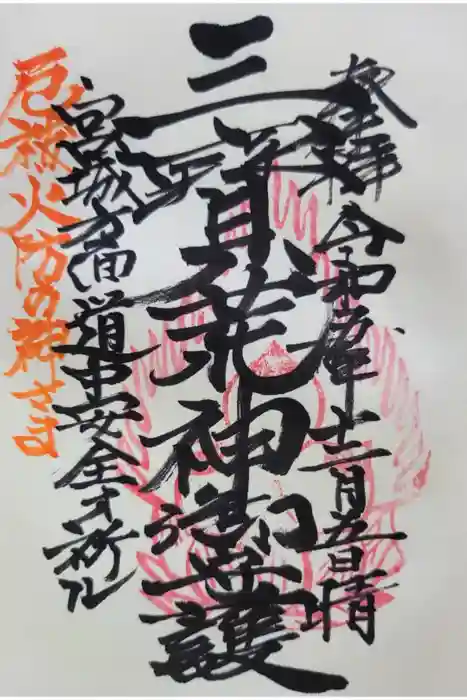 奉拝 令和 年十二月五日晴
三寳荒神御 護
宮城方面道中安全ヲ祈ル
厄祓火防の神さま